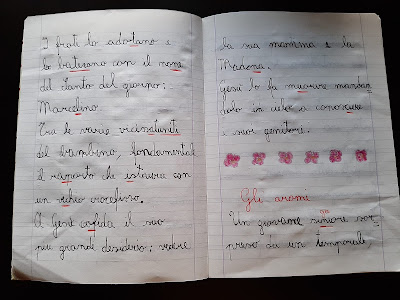 I frati lo adottano e
lo battezano con il nome
del santo del giorno:
Marcellino.
Tra le varie vicissitudini
del bambino, fondamentale
il rapporto che istaura con
un vechio crocefisso.
A Gesù confida il suo
più grande desiderio: vedere
la sua mamma e la
Madona.
Gesù lo fa
in cielo a conoscere
i suoi genitore.
Gli aromi
Un giovane signore sor
preso da un temporale